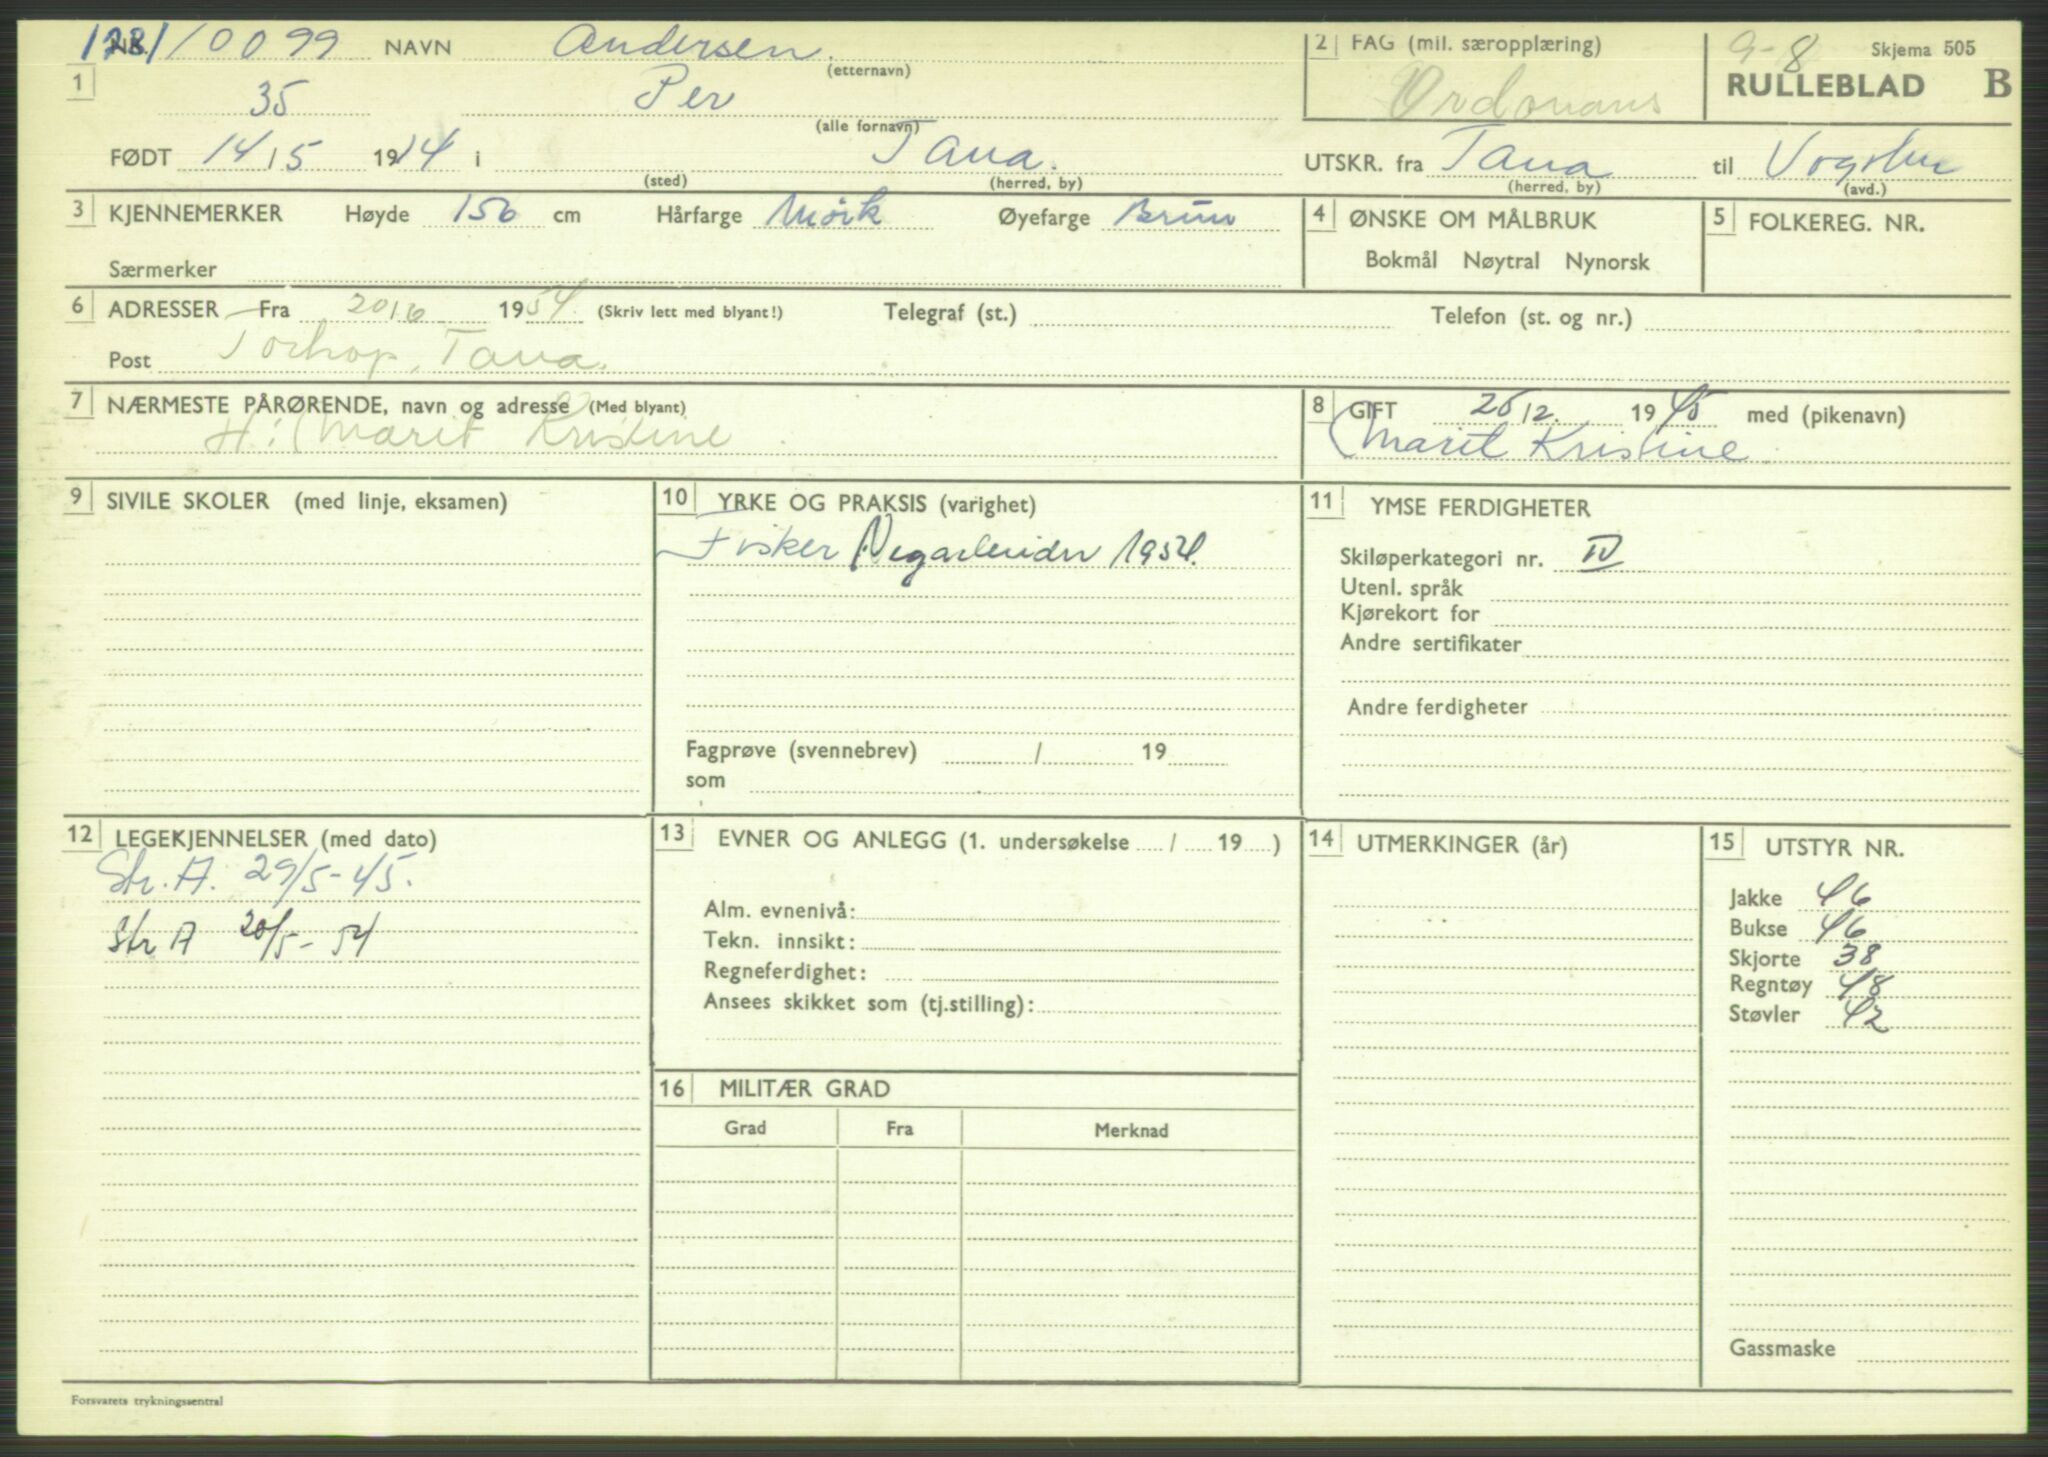 NR. 10099 NAVN Andersen
(etternavn)
2 FAG (mil. særopplæring)
9-8 Skjema 505
1 35 Per
(alle fornavn)
Ordonans
RULLEBLAD B
FØDT 14/5 1914 i Tana.
(sted) (herred, by)
UTSKR. fra Tana til
(herred, by) (avd.)
3 KJENNEMERKER Høyde 156 cm Hårfarge Mørk Øyefarge Brun
Særmerker
4 ØNSKE OM MÅLBRUK
Bokmål Nøytral Nynorsk
5 FOLKEREG. NR.
6 ADRESSER Fra 20/6 1954. (Skriv lett med blyant!) Telegraf (st.) Telefon (st. og nr.)
Post Torhop, Tana.
7 NÆRMESTE PÅRØRENDE, navn og adresse (Med blyant)
H: Marit Kristine
8 GIFT 26/2. 1945 med (pikenavn)
Marit Kristine
9 SIVILE SKOLER (med linje, eksamen)
10 YRKE OG PRAKSIS (varighet)
Fisker Vegarbeider 1954.
Fagprøve (svennebrev) / 19
som
11 YMSE FERDIGHETER
Skiløperkategori nr. IV
Utenl. språk
Kjørekort for
Andre sertifikater
Andre ferdigheter
12 LEGEKJENNELSER (med dato)
Str. A. 29/5-45.
Str A 20/5-54
13 EVNER OG ANLEGG (1. undersøkelse / 19 )
Alm. evnenivå:
Tekn. innsikt:
Regneferdighet:
Ansees skikket som (tj.stilling):
14 UTMERKINGER (år)
15 UTSTYR NR.
Jakke 46
Bukse 46
Skjorte 38
Regntøy 48
Støvler 42
Gassmaske
16 MILITÆR GRAD
Grad Fra Merknad
Forsvarets trykningssentral